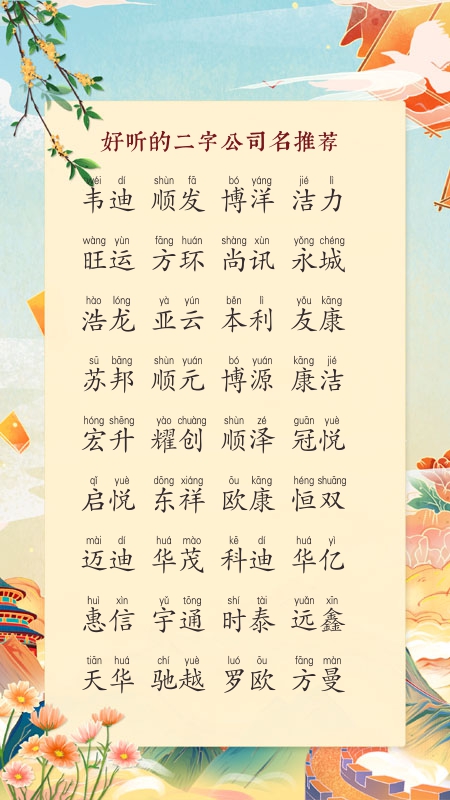 好听的二字公司名推荐
wéi dí shùn fā bó yáng jié lì
韦迪 顺发 博洋 洁力
wàng yùn fāng huán shàng xùn yǒng chéng
旺运 方环 尚讯 永城
hào lóng yà yún běn lì yǒu kāng
浩龙 亚云 本利 友康
sū bāng shùn yuán bó yuán kāng jié
苏邦 顺元 博源 康洁
hóng shēng yào chuàng shùn zé guān yuè
宏升 耀创 顺泽 冠悦
qǐ yuè dōng xiáng ōu kāng héng shuāng
启悦 东祥 欧康 恒双
mài dí huá mào kē dí huá yì
迈迪 华茂 科迪 华亿
huì xìn yǔ tōng shí tài yuǎn xīn
惠信 宇通 时泰 远鑫
tiān huá chí yuè luó ōu fāng màn
天华 驰越 罗欧 方曼